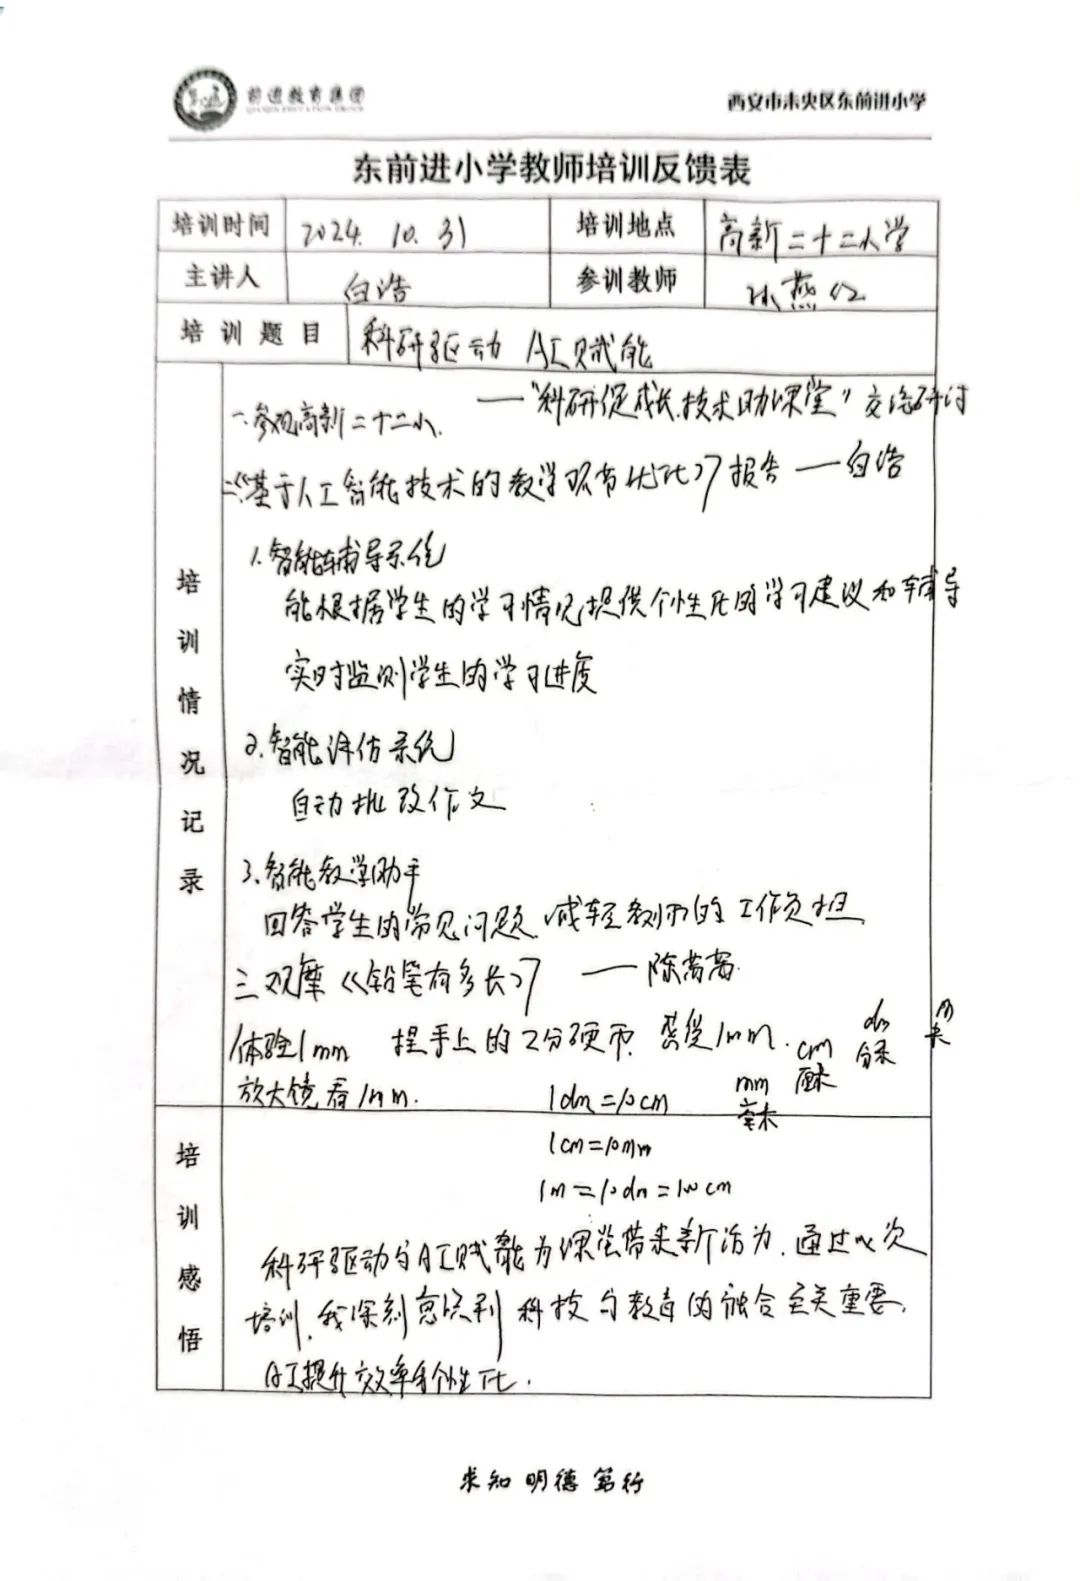 前进教育集团
QIANJIN EDUCATION GROUP
西安市未央区东前进小学
东前进小学教师培训反馈表
培训时间 2024. 10. 31 培训地点 高新二十二小学
主讲人 白浩 参训教师 孙燕
培训题目 科研驱动 AI赋能
——“科研促成长,技术助课堂”交流研讨
培训情况记录
一、参观高新二十二小.
二、《基于人工智能技术的教学环节优化》报告 ——白浩
1.智能辅导系统
能根据学生的学习情况,提供个性化的学习建议和辅导
实时监测学生的学习进度
2.智能评估系统
自动批改作文
3.智能教学助手
回答学生的常见问题,减轻教师的工作负担.
三.观摩《铅笔有多长》 ——陈
体验1mm 捏手上的2分硬币 感受1mm. mm 毫米 cm 厘米 dm 分米 m 米
放大镜看1mm. 1dm=10cm
1cm=10mm
1m=10dm=100cm
培训感悟
科研驱动与AI赋能为课堂带来新活力.通过此次
培训,我深刻意识到科技与教育的融合至关重要.
AI提升效率和个性化.
求知 明德 笃行